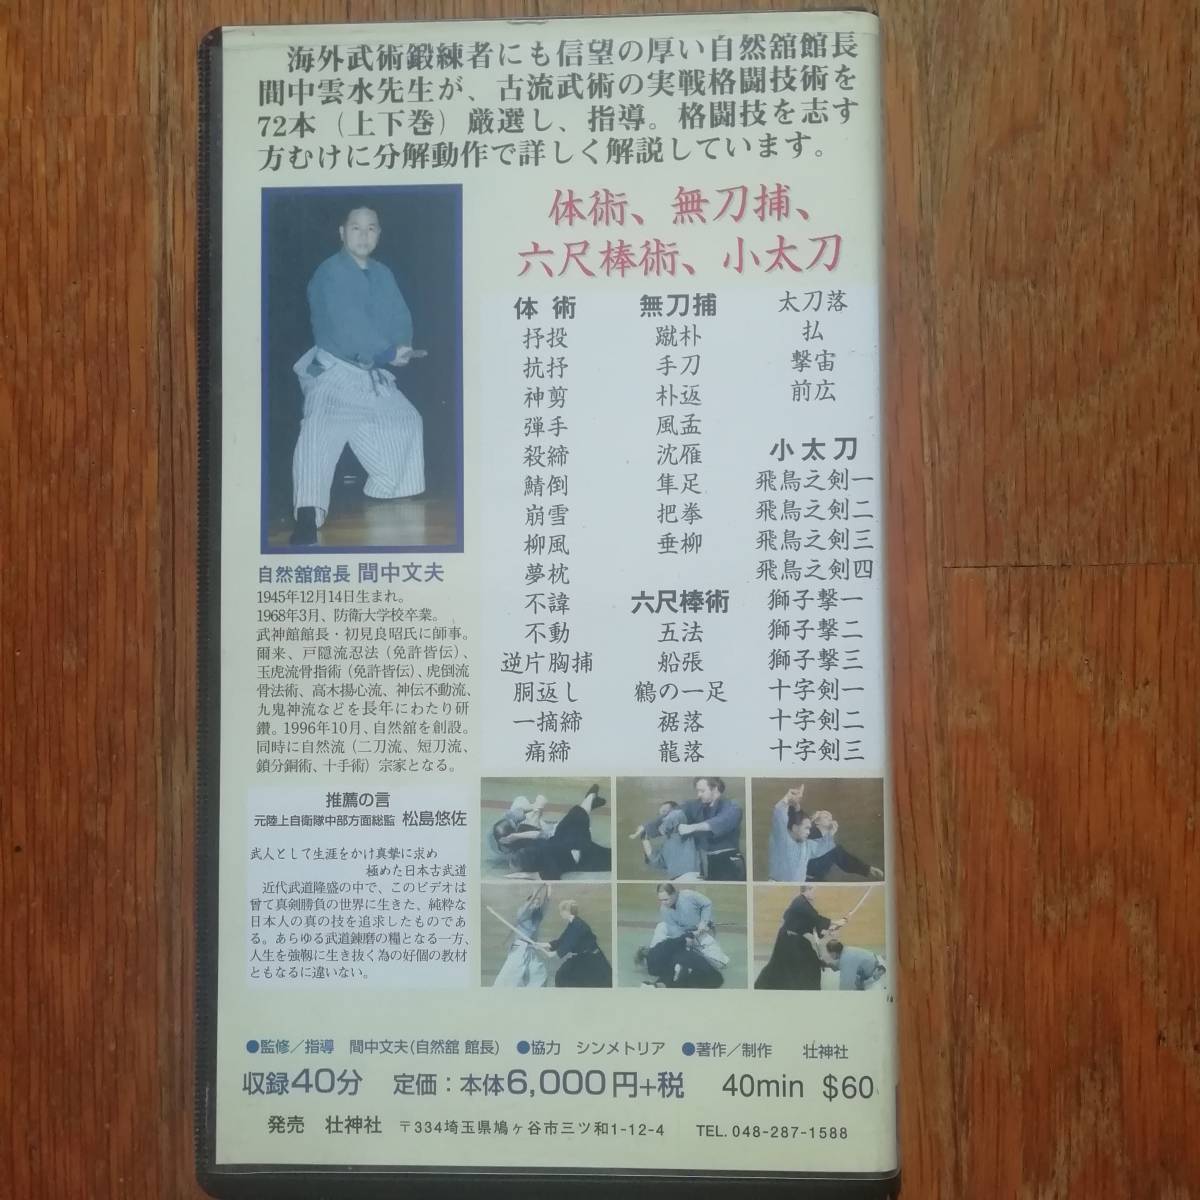 海外武術鍛練者にも信望の厚い自然舘館長
間中雲水先生が、古流武術の実戦格闘技術を
72本（上下巻）厳選し、指導。格闘技を志す
方むけに分解動作で詳しく解説しています。
体術、無刀捕、
六尺棒術、小太刀
体術
抒投
抗抒
神剪
弾手
殺締
鯖倒
崩雪
柳風
夢枕
不諱
不動
逆片胸捕
胴返し
一摘締
痛締
無刀捕
蹴朴
手刀
朴返
風孟
沈雁
隼足
把拳
垂柳
六尺棒術
五法
船張
鶴の一足
裾落
龍落
太刀落
払
撃宙
前広
小太刀
飛鳥之剣一
飛鳥之剣二
飛鳥之剣三
飛鳥之剣四
獅子撃一
獅子撃二
獅子撃三
十字剣一
十字剣二
十字剣三
自然舘館長 間中文夫
1945年12月14日生まれ。
1968年3月、防衛大学校卒業。
武神館館長・初見良昭氏に師事。
爾来、戸隠流忍法（免許皆伝）、
玉虎流骨指術（免許皆伝）、虎倒流
骨法術、高木揚心流、神伝不動流、
九鬼神流などを長年にわたり研
鑽。1996年10月、自然舘を創設。
同時に自然流（二刀流、短刀流、
鎖分銅術、十手術）宗家となる。
推薦の言
元陸上自衛隊中部方面総監 松島悠佐
武人として生涯をかけ真摯に求め
極めた日本古武道
近代武道隆盛の中で、このビデオは
曾て真剣勝負の世界に生きた、純粋な
日本人の真の技を追求したものであ
る。あらゆる武道錬磨の糧となる一方、
人生を強靱に生き抜く為の好個の教材
ともなるに違いない。
●監修／指導 間中文夫(自然舘 館長) ●協力 シンメトリア ●著作／制作 壮神社
収録40分 定価：本体6,000円+税 40min $60
発売 壮神社 〒334埼玉県鳩ヶ谷市三ツ和1-12-4 TEL. 048-287-1588